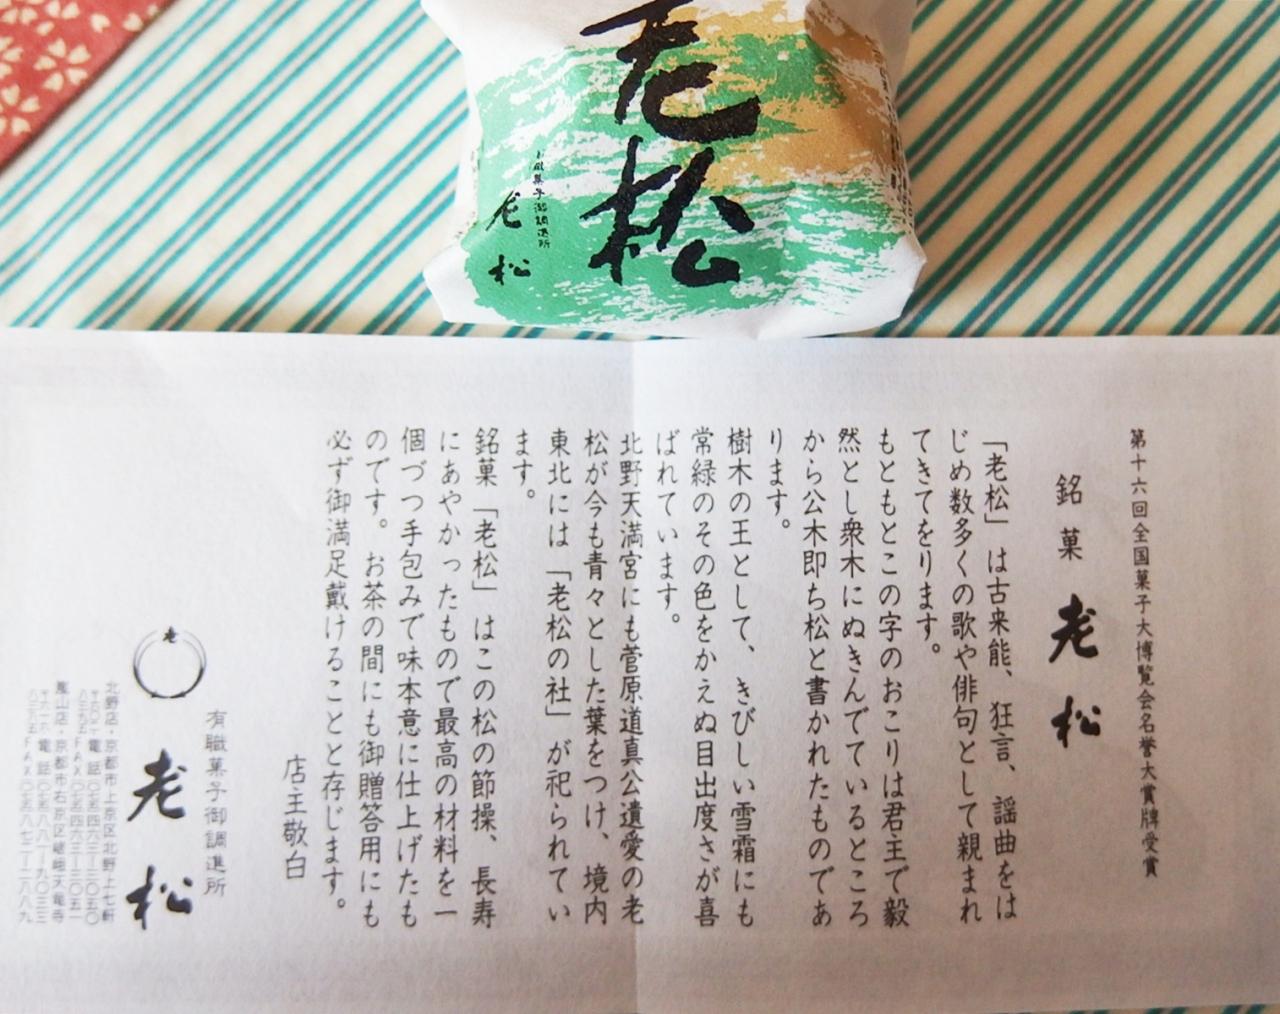 老松
有職菓子御調進所
老松
第十六回全国菓子大博覧会名誉大賞牌受賞
銘菓 老松
「老松」は古来能、狂言、謡曲をは
じめ数多くの歌や俳句として親まれ
てきてをります。
もともとこの字のおこりは君主で毅
然とし衆木にぬきんでているところ
から公木即ち松と書かれたものであ
ります。
樹木の王として、きびしい雪霜にも
常緑のその色をかえぬ目出度さが喜
ばれています。
北野天満宮にも菅原道真公遺愛の老
松が今も青々とした葉をつけ、境内
東北には「老松の社」が祀られてい
ます。
銘菓「老松」はこの松の節操、長寿
にあやかったもので最高の材料を一
個づつ手包みで味本意に仕上げたも
のです。お茶の間にも御贈答用にも
必ず御満足戴けることと存じます。
店主敬白
有職菓子御調進所
老
老松
北野店・京都市上京区北野上七軒
電話〇七五(四六三)三〇五〇
FAX〇七五(四六三)三〇五一
嵐山店・京都市右京区嵯峨天龍寺
電話〇七五(八八一)九〇三三
FAX〇七五(八七二)二八八九